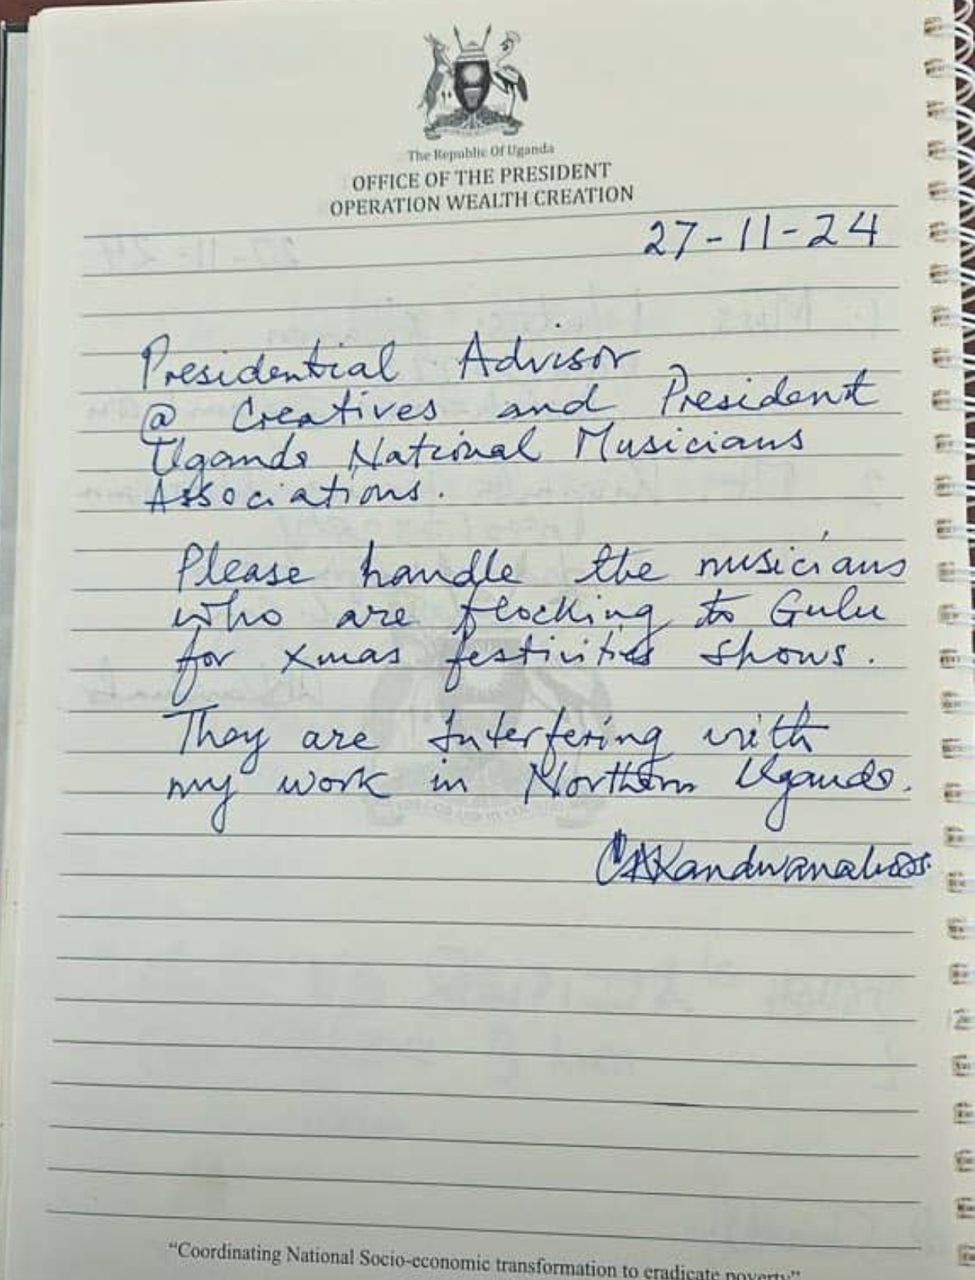 The Republic Of Uganda
OFFICE OF THE PRESIDENT
OPERATION WEALTH CREATION
27-11-24
Presidential Advisor
@ Creatives and President
Uganda National Musicians
Associations.
Please handle the musicians
who are flocking to Gulu
for xmas festivities shows.
They are Interfering with
my work in Northern Uganda.
“Coordinating National Socio-economic transformation to eradicate poverty”